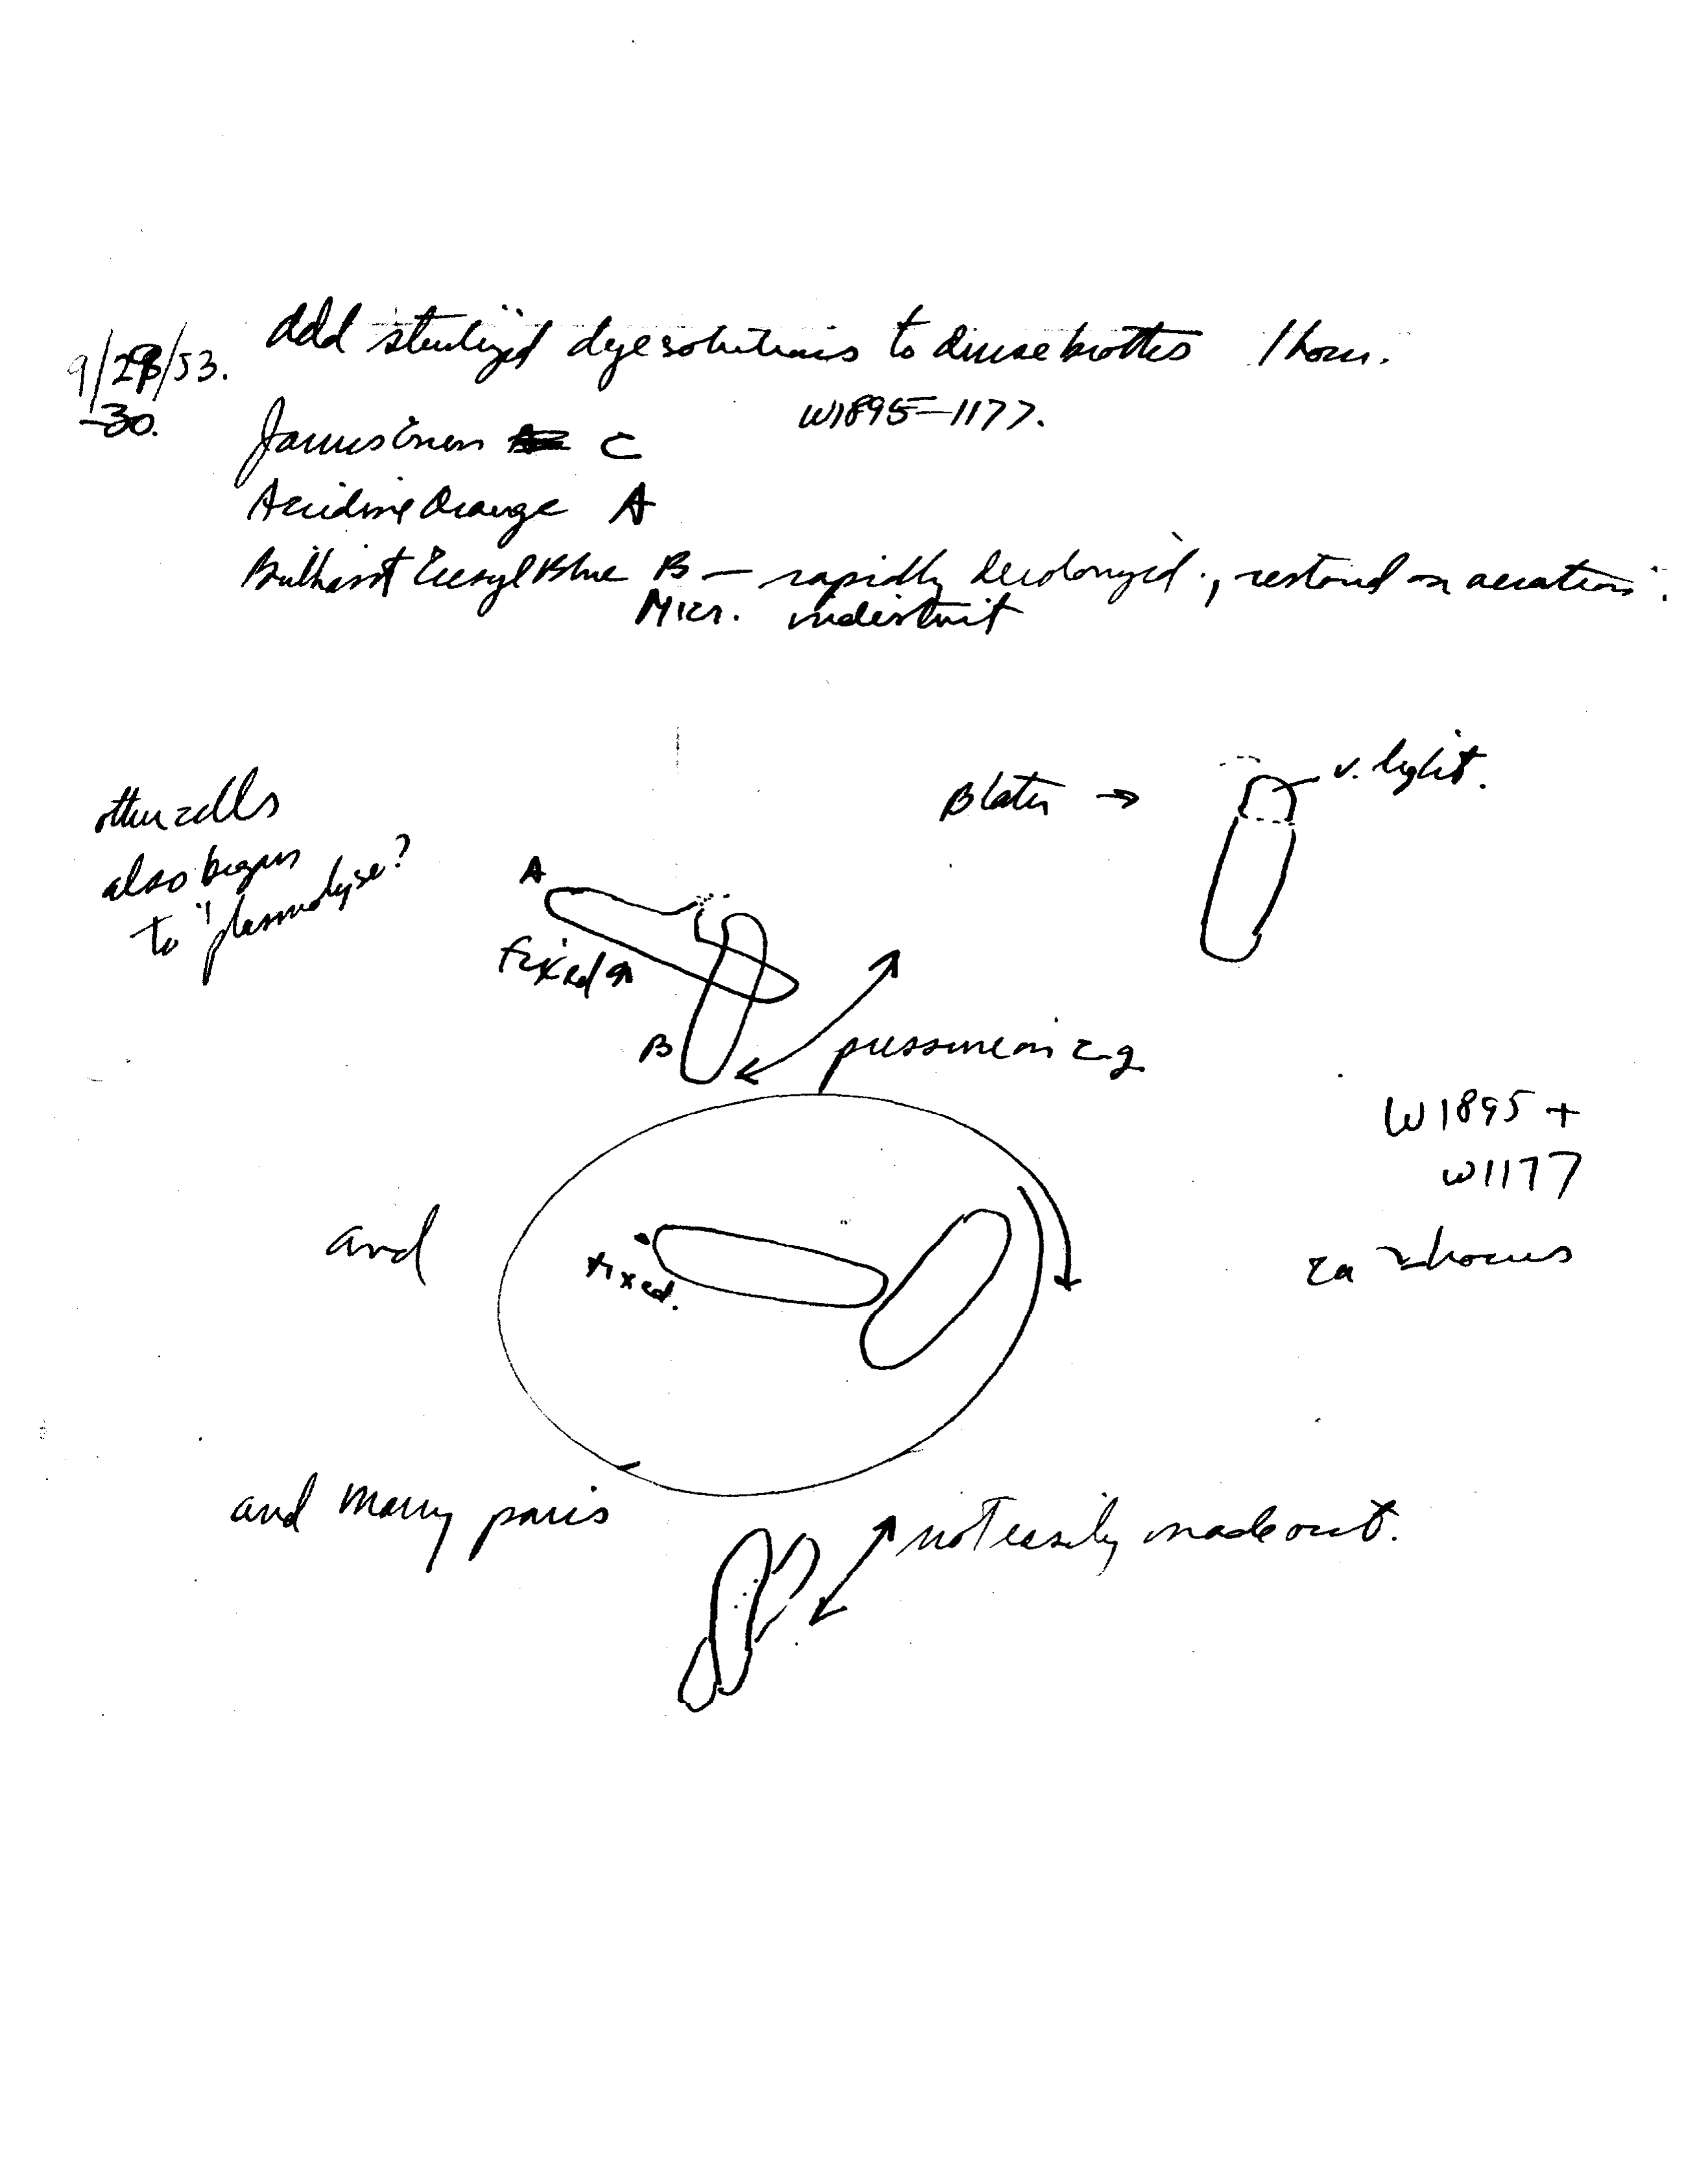 9/28/53. Add sterilized dye solutions to dense broths 1 hour.
-30.
W1895-1177.
Janus Green C
Acridine Orange A
Brilliant Cresyl Blue B - rapidly decolorized., restored on aeration.
Micr. indistinct
B later → v. light.
other cells
also begun
to "plasmolyse?
A
fixed
B
pressure on c-g.
W1895 +
W1177
ca 2 hours
and
fixed.
and many pairs
not easily made out.